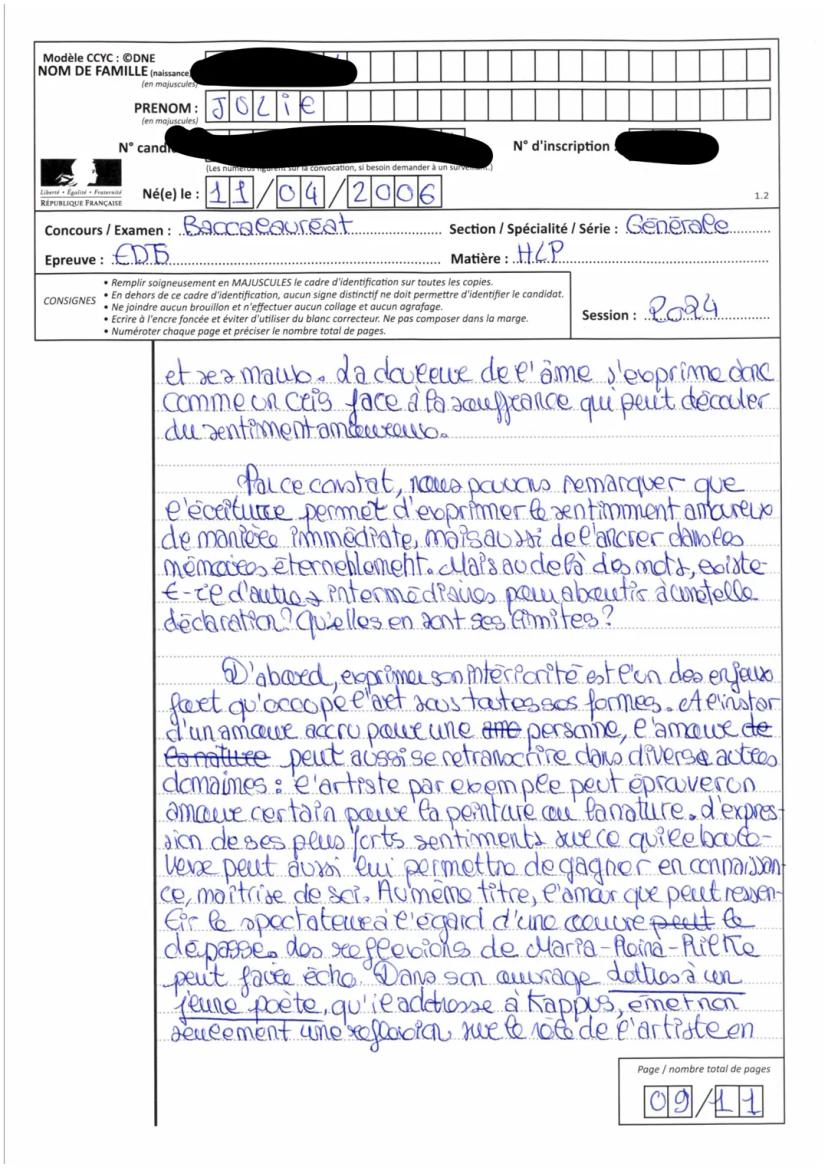 Modèle CCYC : ©DNE
NOM DE FAMILLE (naissance)
(en majuscules)
PRENOM : JOLIE
(en majuscules)
N° candi N° d'inscription :
(Les numéros figurent sur la convocation, si besoin demander à un surveillant.)
Liberté • Égalité • Fraternité
RÉPUBLIQUE FRANÇAISE
Né(e) le : 11/04/2006
1.2
Concours / Examen : Baccalauréat Section / Spécialité / Série : Générale
Epreuve : EDS Matière : HLP
CONSIGNES
• Remplir soigneusement en MAJUSCULES le cadre d'identification sur toutes les copies.
• En dehors de ce cadre d'identification, aucun signe distinctif ne doit permettre d'identifier le candidat.
• Ne joindre aucun brouillon et n'effectuer aucun collage et aucun agrafage.
• Ecrire à l'encre foncée et éviter d'utiliser du blanc correcteur. Ne pas composer dans la marge.
• Numéroter chaque page et préciser le nombre total de pages.
Session : 2024
et ses maux. La douleur de l'âme s'exprime donc
comme un cris face à la souffrance qui peut découler
du sentiment amoureux.
Par ce constat, nous pouvons remarquer que
l'écriture permet d'exprimer le sentimment amoureux
de manière immédiate, mais aussi de l'ancrer dans les
mémoires éternellement. Mais au delà des mots, existe-
t-il d'autres intermédiaires pour aboutir à une telle
déclaration? Qu'elles en sont ses limites?
D'abord, exprimer son intériorité est l'un des enjeux
fort qu'occupe l'art sous toutes ses formes. A l'instar
d'un amour accru pour une ame personne, l'amour de
la nature peut aussi se retranscrire dans divers autres
domaines : l'artiste par exemple peut éprouver un
amour certain pour la peinture ou la nature. L'expres-
sion de ses plus forts sentiments sur ce qui le boule-
verse peut aussi lui permettre de gagner en connaissan-
ce, maîtrise de soi. Au même titre, l'amour que peut ressen-
tir le spectateur à l'égard d'une oeuvre peut le
dépasse. Les reflexions de Maria-Reina-Rilke
peut faire écho. Dans son ouvrage Lettres à un
jeune poète, qu'il addresse à Kappus, émet non
seulement une reflexion sur le rôle de l'artiste en
Page / nombre total de pages
09/11